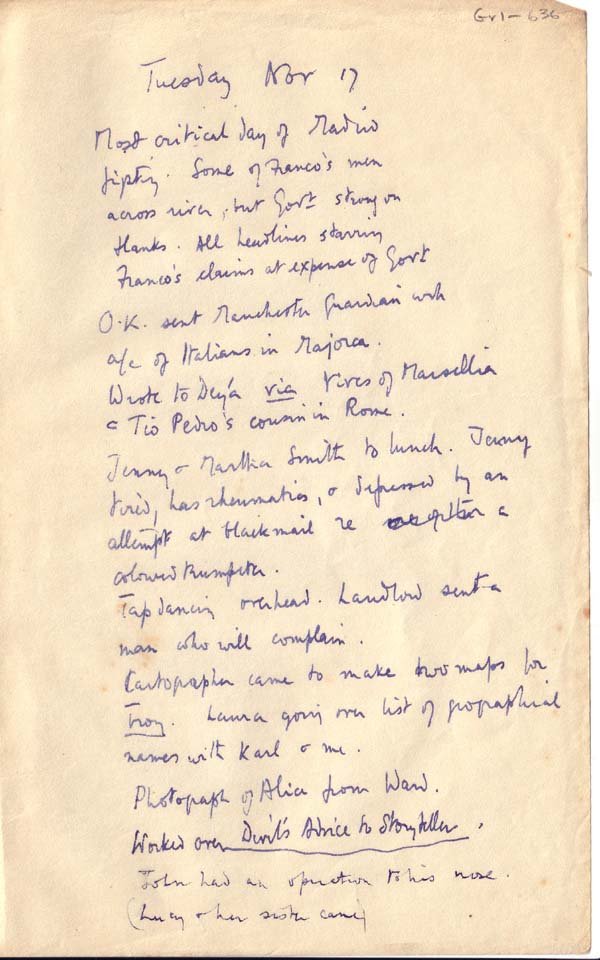 Gr1-636
Tuesday Nov 17
Most critical day of Madrid
fighting. Some of Franco's men
across river, but Govt strong on
flanks. All headlines starring
Franco's claims at expense of Govt
O.K. sent Manchester Guardian with
a/c of Italians in Majorca.
Wrote to Deyá via Vives of Marsellia
Tio Pedro's cousin in Rome.
Jenny & Martha Smith to lunch. Jenny
tired, has rheumatics, & depressed by an
attempt at blackmail re a
coloured trumpeter.
Tap dancing overhead. Landlord sent a
man who will complain.
Cartographer came to make two maps for
Troy. Laura going over list of geographical
names with Karl & me.
Photograph of Alice from Ward.
Worked over Devil's Advice to Storyteller.
John had an operation to his nose.
(Lucy & her sister came)